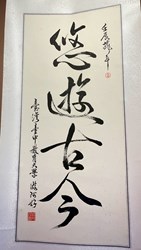 壬辰龍年
悠遊古今
臺灣臺中教育大學